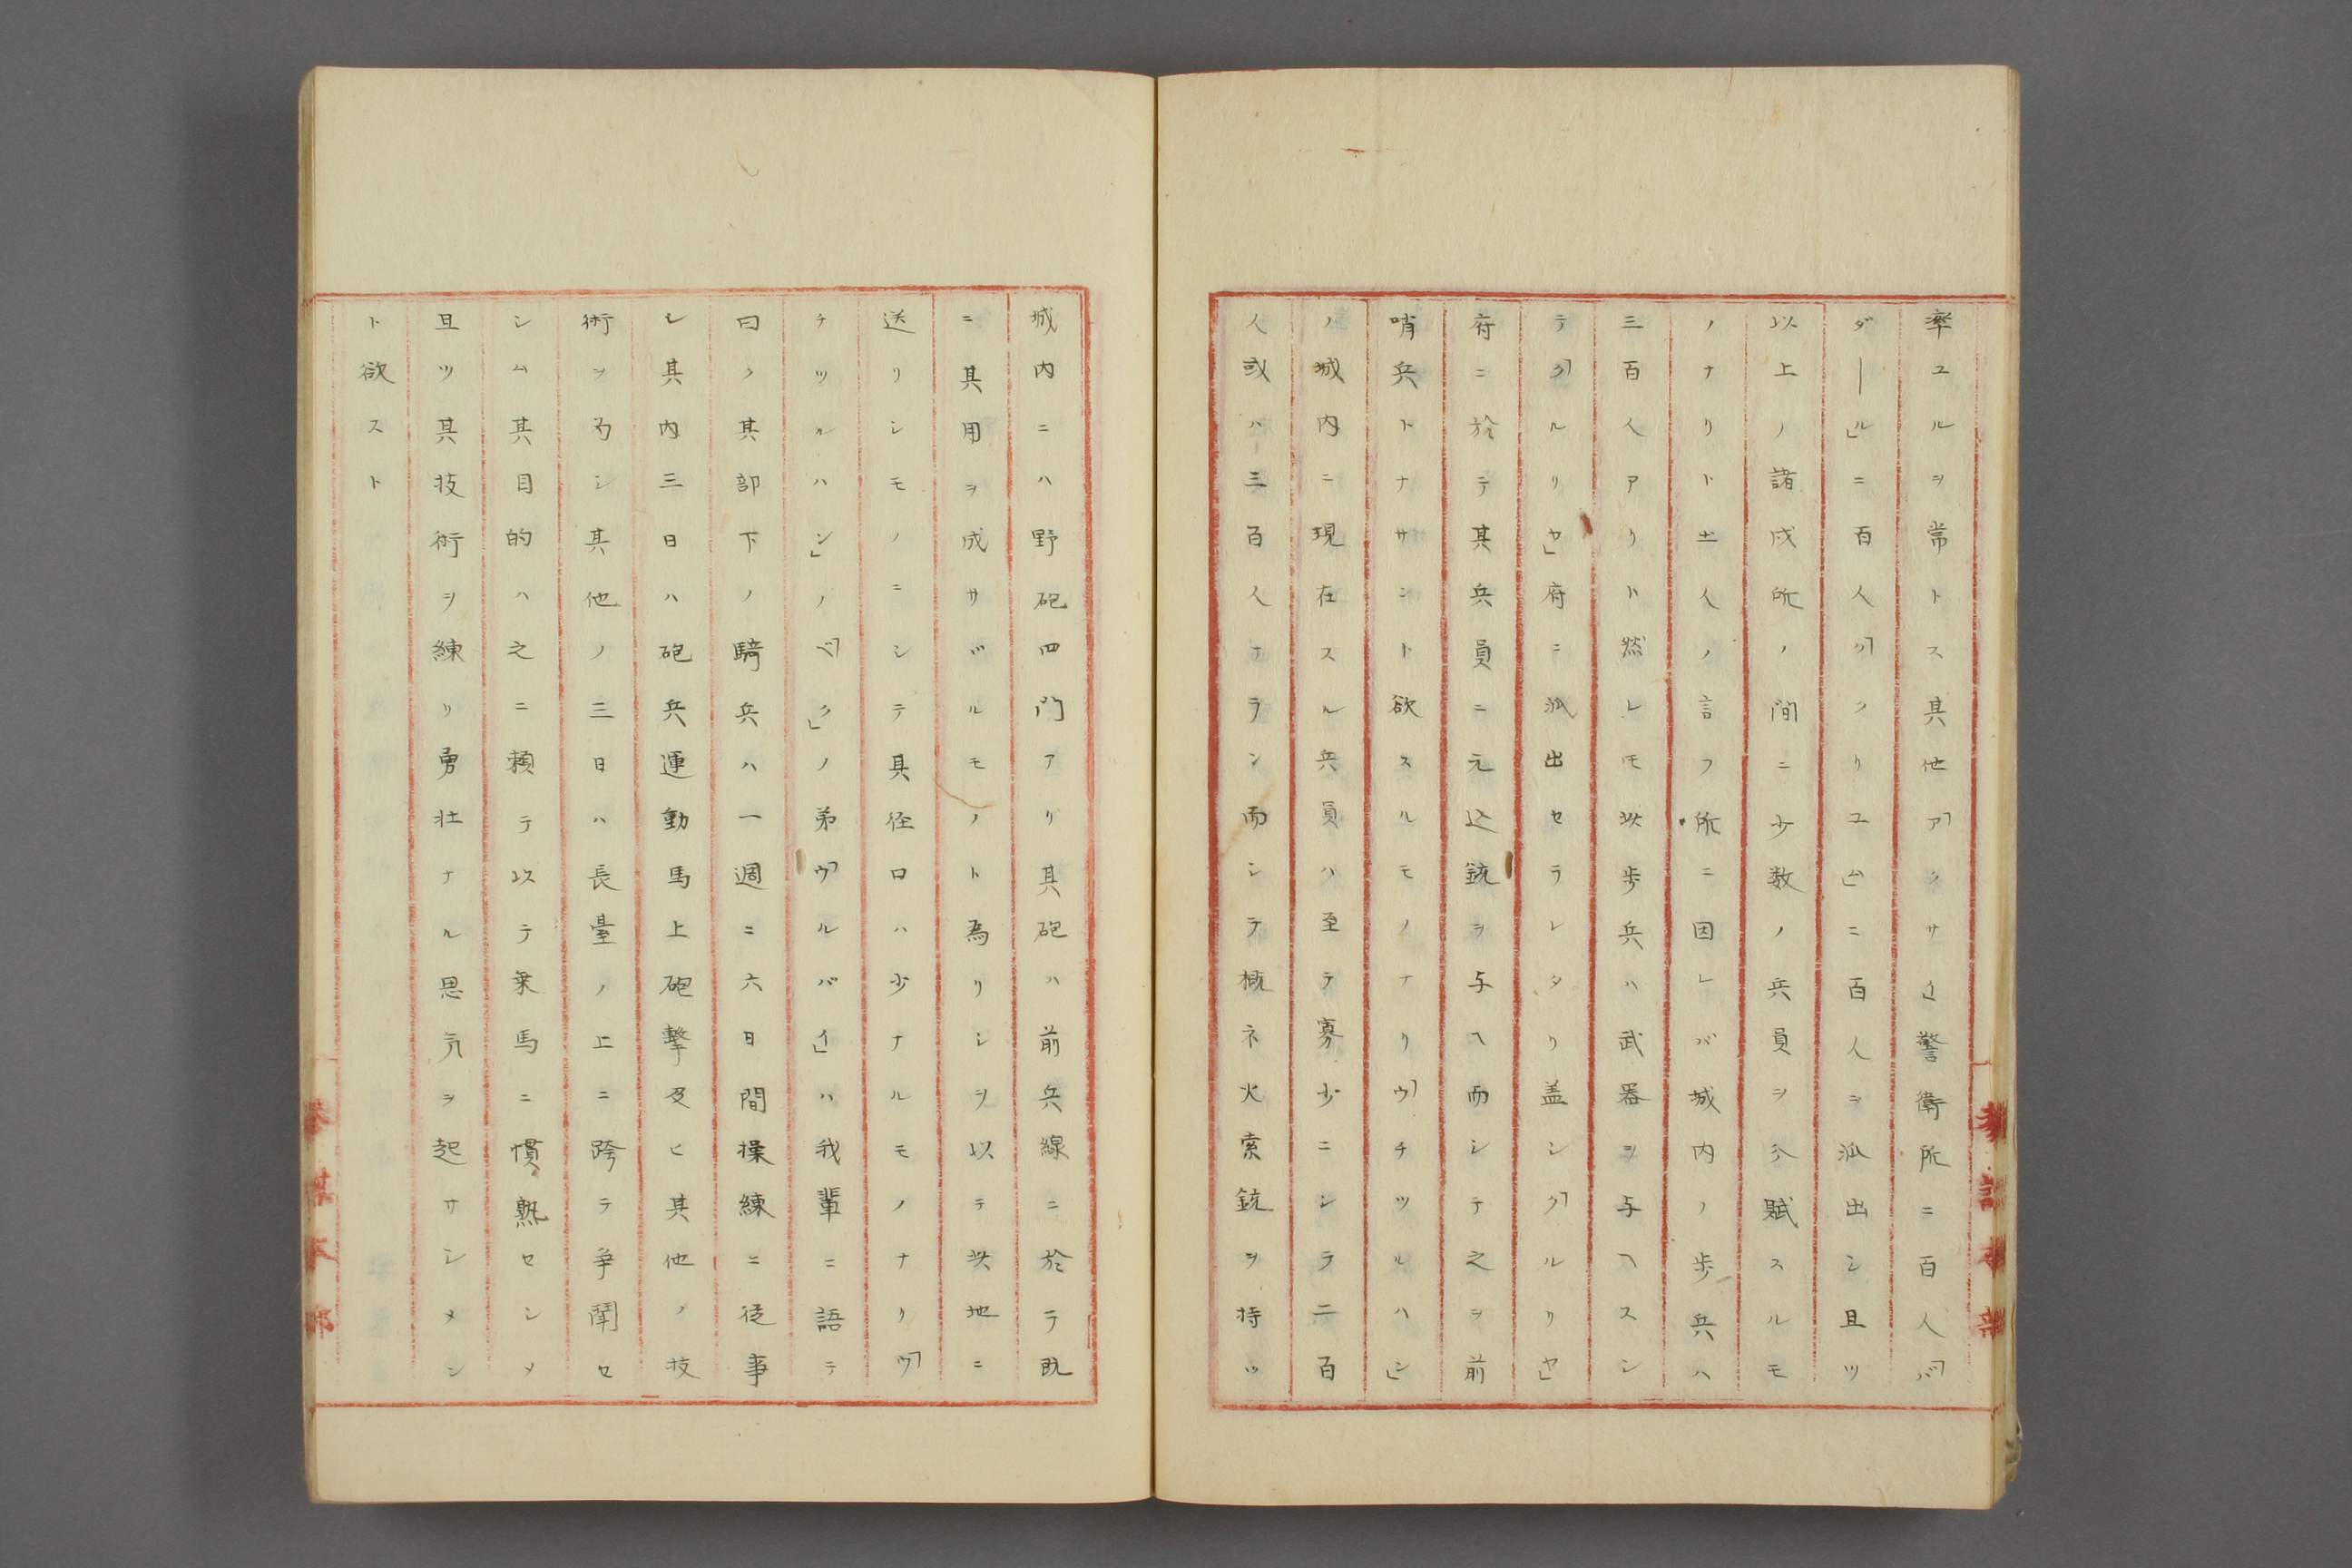 率ユルヲ常トス其他「アクサイ」警衛所ニ百人「バ
ダール」ニ百人「クフリユム」ニ百人ヲ派出シ且ツ
以上ノ諸戍所ノ間ニ少数ノ兵員ヲ分賦スルモ
ノナリト土人ノ言フ所ニ因レバ城内ノ歩兵ハ
三百人アリト然レモ此歩兵ハ武器ヲ与ヘスシ
テ「クルリヤ」府ニ派出セラレタリ盖シ「クルリヤ」
府ニ於テ其兵員ニ元込銃ヲ与ヘ而シテ之ヲ前
哨兵トナサント欲スルモノナリ「ウチツルハン」
ノ城内ニ現在スル兵員ハ至テ寡少ニシテ二百
人或ハ三百人ナラン而シテ概ネ火索銃ヲ持ツ
城内ニハ野砲四門アリ其砲ハ前兵線ニ於テ既
ニ其用ヲ成サヾルモノト為リシヲ以テ此地ニ
送リシモノニシテ具径口ハ少ナルモノナリ「ウ
チツルハン」ノ「ベク」ノ弟「ウルバイ」ハ我輩ニ語テ
曰ク其部下ノ騎兵ハ一週ニ六日間操練ニ従事
シ其内三日ハ砲兵運動馬上砲撃及ヒ其他ノ技
術ヲ為シ其他ノ三日ハ長臺ノ上ニ跨テ争闘セ
シム其目的ハ之ニ頼テ以テ乗馬ニ慣熟セシメ
且ツ其技術ヲ練リ勇壮ナル思気ヲ起サシメン
ト欲スト
参謀本部
参謀本部